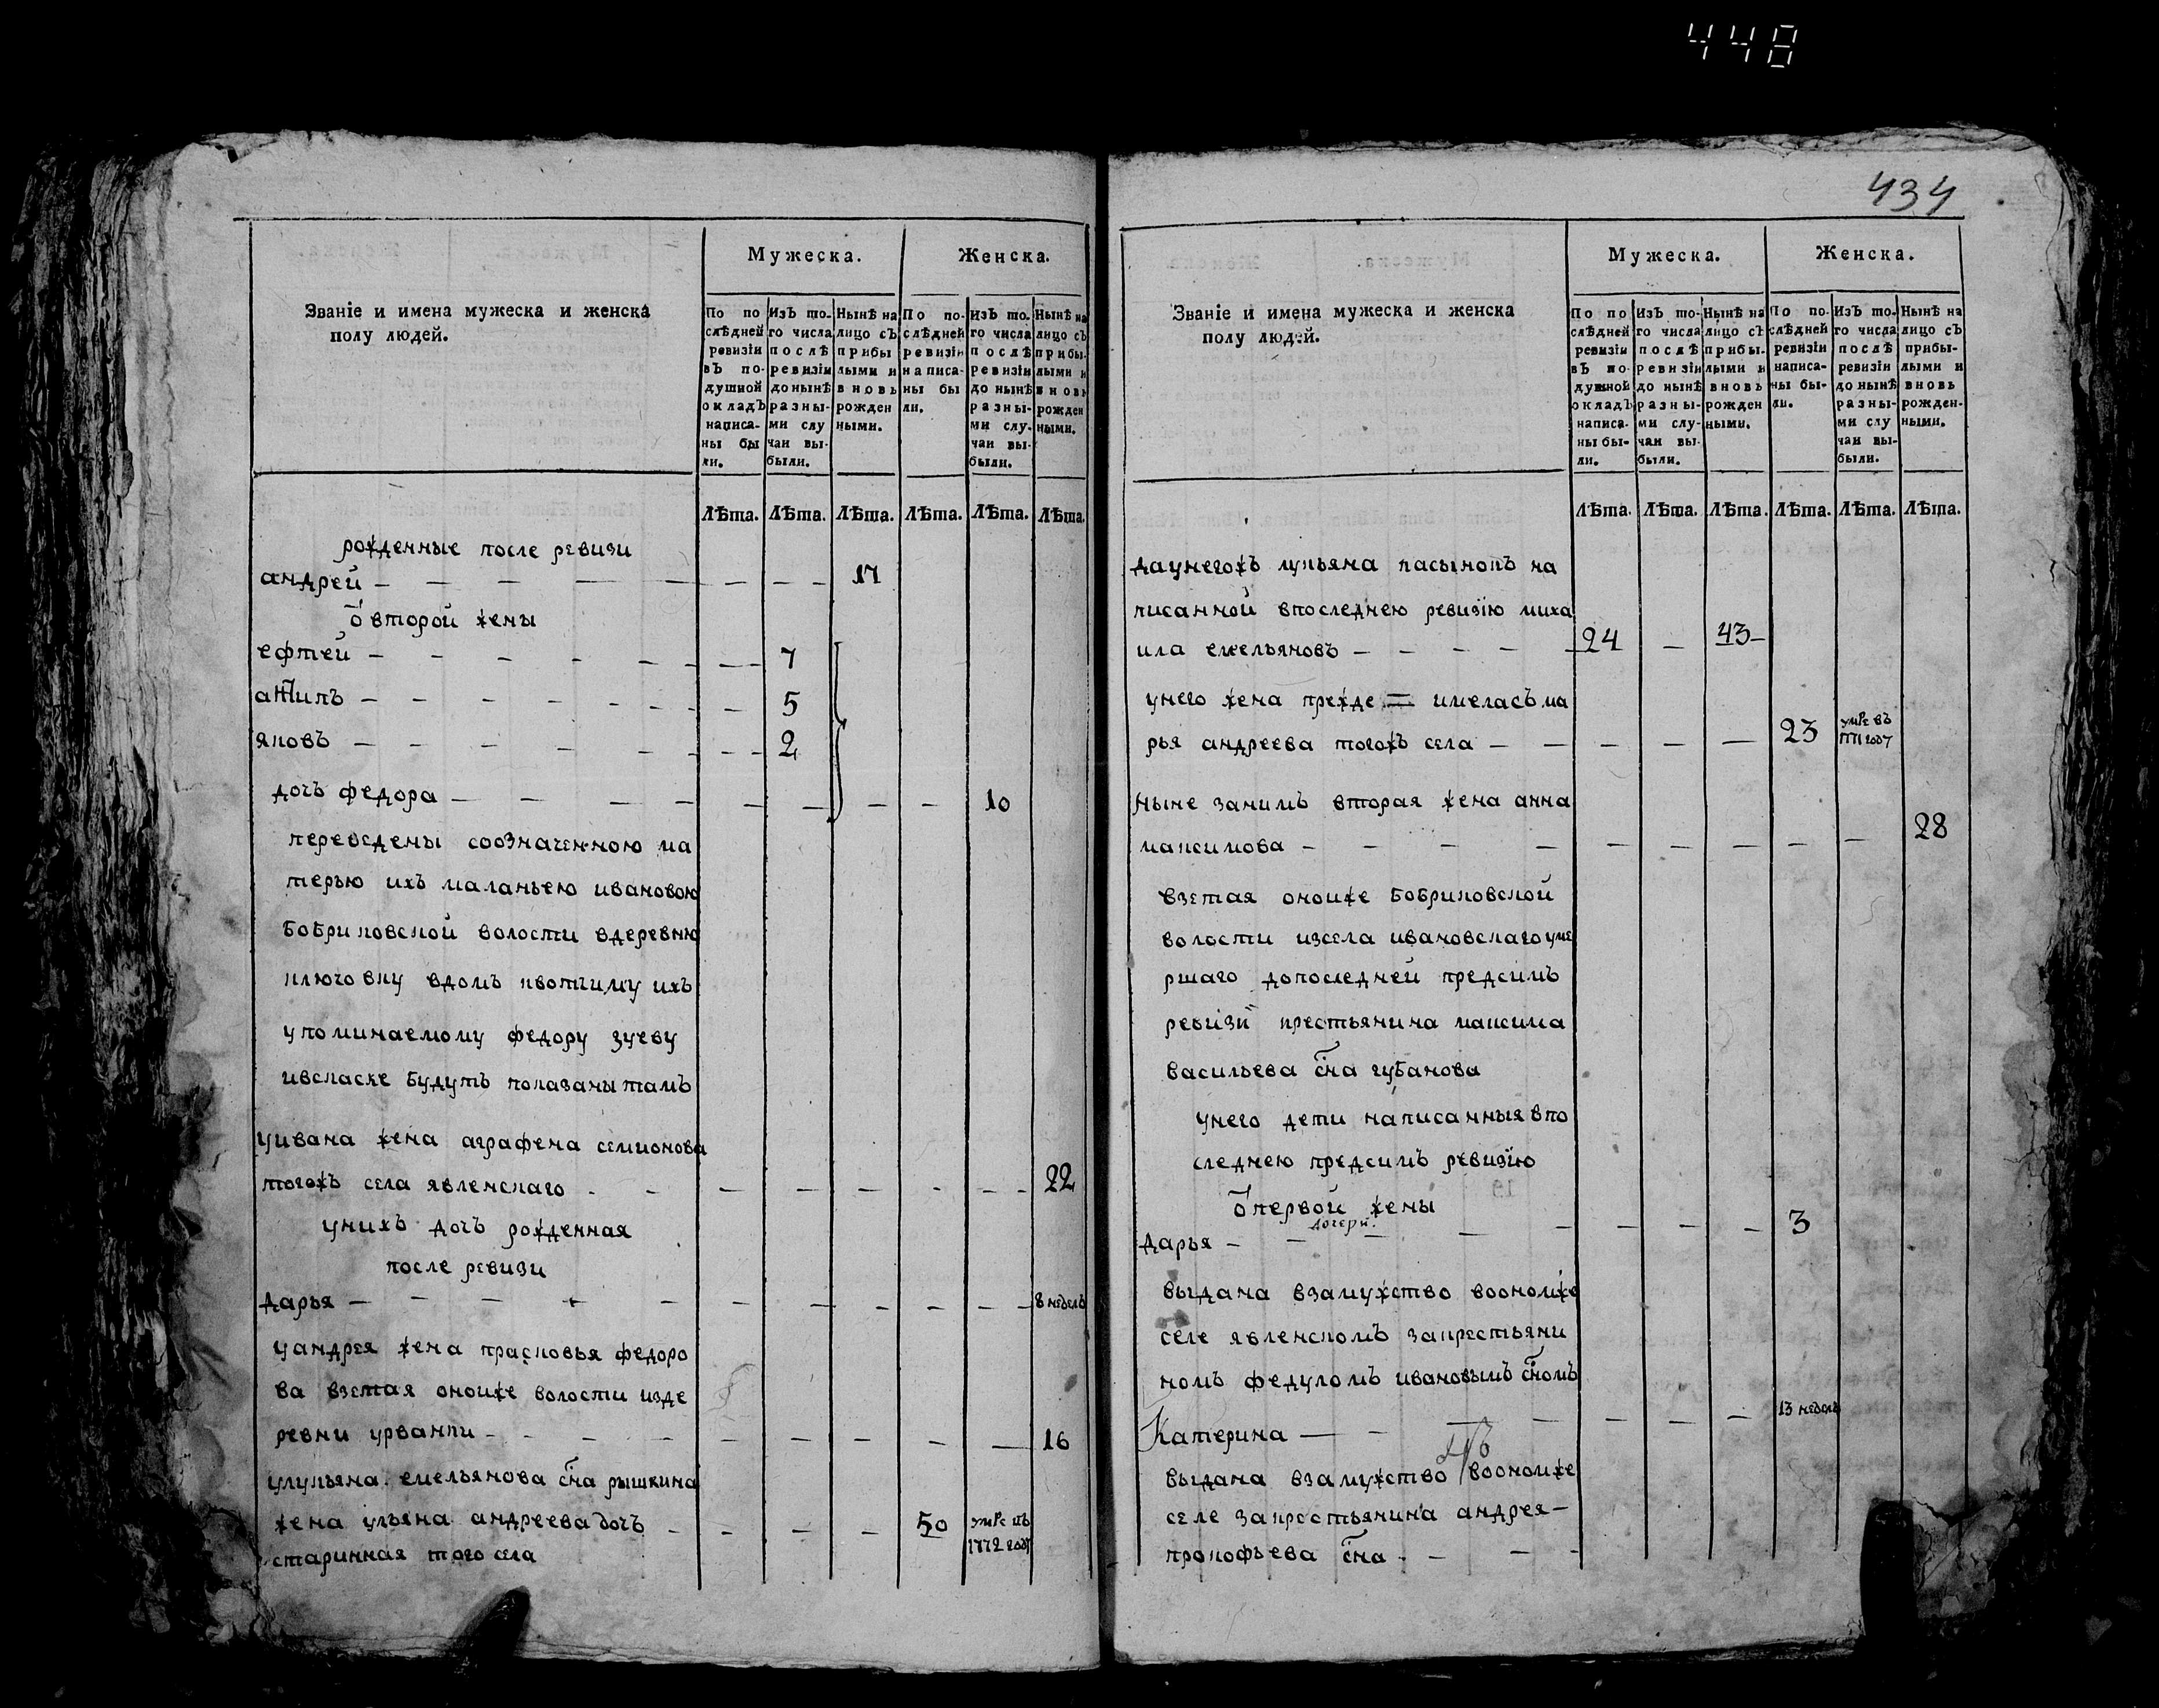 448
434
Мужеска.
Женска.
Званіе и имена мужеска и женска
полу людей.
По по
слѣдней
ревизіи
въ по-
душной
окладъ
написа-
ны бы
ли.
Изъ то-
го числа
послѣ
ревизіи
до нынѣ
разны-
ми слу
чаи вы-
были.
Нынѣ на
лицо съ
прибы
лыми и
вновь
рожден
ными.
По по-
слѣдней
ревизіи
написа-
ны бы
ли.
Изъ то-
го числа
послѣ
ревизіи
до нынѣ
разны-
ми слу-
чаи вы-
были.
Нынѣ на
лицо съ
прибы-
лыми и
вновь
рожден
ными.
Лѣта. Лѣта. Лѣта. Лѣта. Лѣта. Лѣта.
рожденные после ревизи
андрей — 17
ѿ второй жены
ефтей — 7
5
яковъ — 2
дочъ федора — 10
переведены соозначенною ма
терью ихъ маланьею ивановою
бобриковской волости вдеревню
ключовку вдомъ квотчиму ихъ
упоминаемому федору зуеву
ивсласке будутъ показаны тамъ
уивана жена аграфена семионова
тогожъ села явленскаго — 22
унихъ дочъ рожденная
после ревизи
дарья — 8 неделъ
уандрея жена прасковья федоро
ва взетая оноиже волости изде
ревни урванки — 16
улукьяна емельянова сна рышкина
жена ульяна андреева дочъ — 50 умре въ
старинная того села 1772 году
Мужеска.
Женска.
Званіе и имена мужеска и женска
полу людей.
По по
слѣдней
ревизіи
въ по-
душной
окладъ
написа-
ны бы-
ли.
Изъ то-
го числа
послѣ
ревизіи
до нынѣ
разны-
ми слу-
чаи вы-
были.
Нынѣ на
лицо съ
прибы-
лыми и
вновь
рожден
ными.
По по-
слѣдней
ревизіи
написа-
ны бы-
ли.
Изъ то-
го числа
послѣ
ревизіи
до нынѣ
разны-
ми слу
чаи вы-
были.
Нынѣ на
лицо съ
прибы-
лыми и
вновь
рожден-
ными.
Лѣта. Лѣта. Лѣта. Лѣта. Лѣта. Лѣта.
даунегожъ лукьяна пасынокъ на
писанной впоследнею ревизію миха
ила емельяновъ — 24 — 43 —
унего жена прежде имеласъ ма
рья андреева тогожъ села — 23 умре въ
1771 году
Ныне занимъ вторая жена анна
максимова — 28
взетая оноиже бобриковской
волости изсела ивановскаго уме
ршаго допоследней предсимъ
ревизи крестьянина максима
васильева сна губанова
унего дети написанныя впо
следнею предсимъ ревизию
ѿ первой жены
дочери.
Дарья — 3
выдана взамужство воономже
селе явленскомъ закрестьяни
номъ федуломъ ивановымъ сномъ
Катерина — 13 неделъ
выдана взамужство воономже
селе закрестьянина андрея —
прокофьева сна —